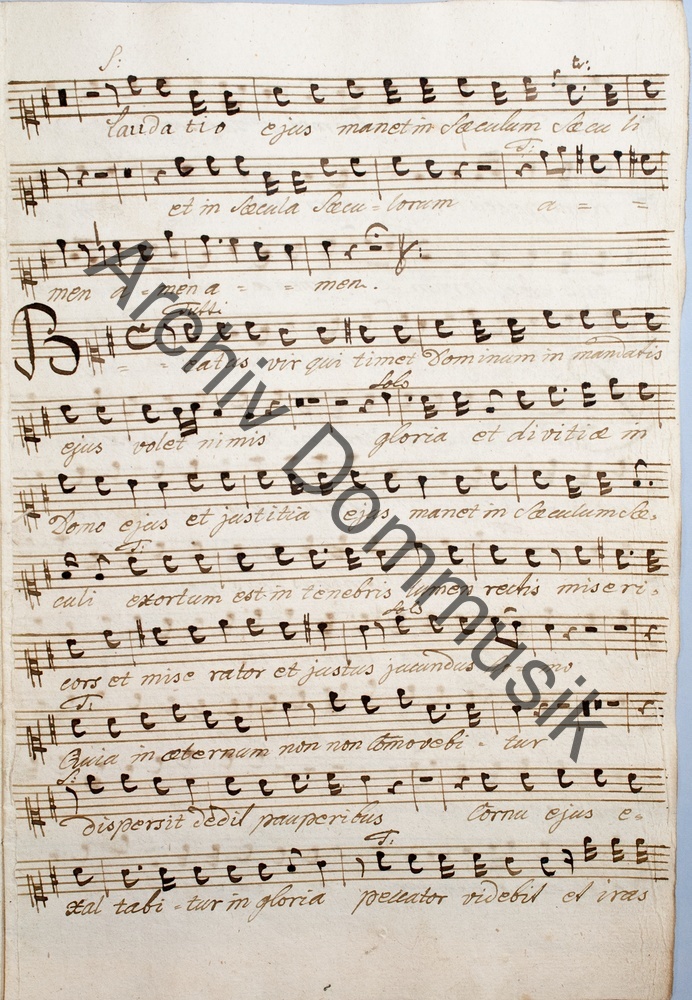 S: t:
laudatio ejus manet in Sæculum Sæculi
T:
et in Sæcula Sæcu - lorum a = =
men a - men a - - men.
Tutti
B = = eatus vir qui timet Dominum in mandatis
Solo
ejus volet nimis gloria et divitiæ in
Domo ejus et justitia ejus manet in Sæculum Sæ-
T:
culi exortum est in tenebris lumen rectis miseri-
Solo
cors et mise rator et justus jucundus mo
T:
Quia in æternum non non Comovebi - tur
S:
dispersit dedit pauperibus Cornu ejus e-
T:
xal tabi - tur in gloria peccator videbit et iras
Archiv Dommusik